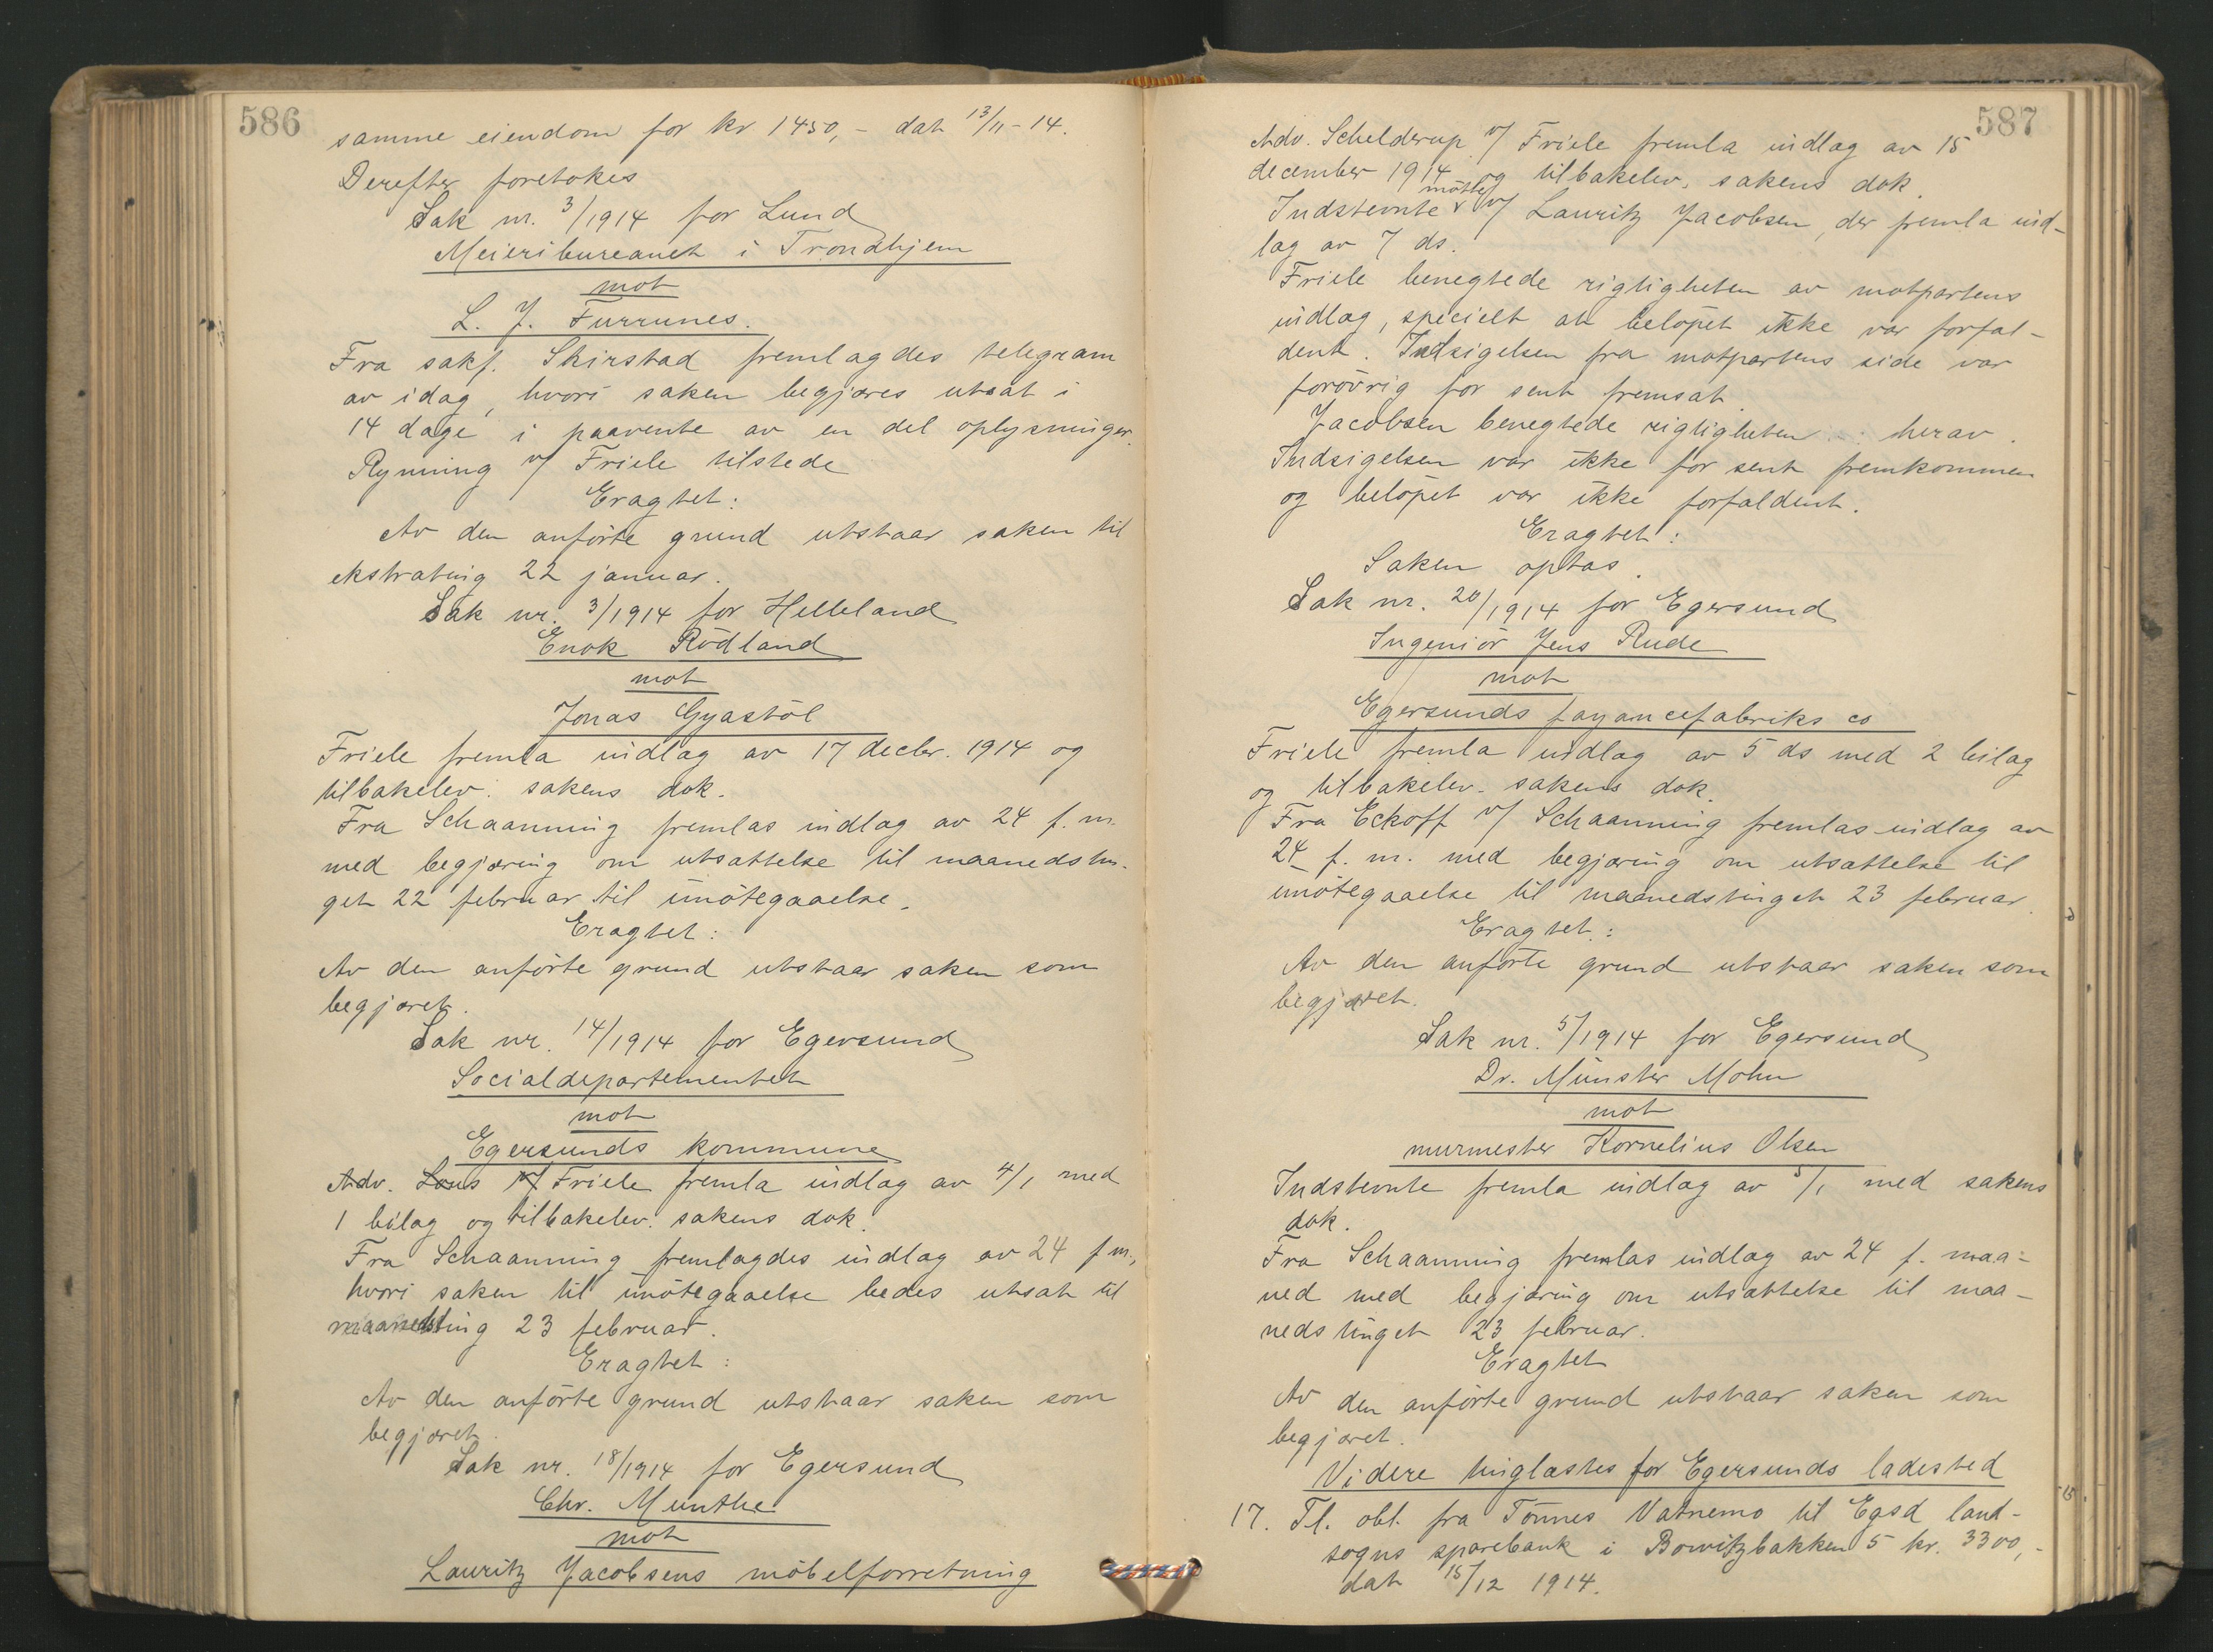 586
samme eiendom for kr 1450,- dat 13/11-14.
Derefter foretokes
Sak nr. 3/1914 for Lund
Meieribureauet i Trondhjem
mot
L. J. Furrunes.
Fra sakf. Skirstad fremlagdes telegram
av idag, hvori saken begjæres utsat i
14 dage i paavente av en del oplysninger.
Rynning v/ Friele tilstede
Eragtet:
Av den anførte grund utstaar saken til
ekstrating 22 januar.
Sak nr. 3/1914 for Helleland
Enok Rödland
mot
Jonas Gyastöl
Friele fremla indlæg av 17 decbr. 1914 og
tilbakelev. sakens dok.
Fra Schaanning fremlas indlæg av 24 f.m.
med begjæring om utsættelse til maanedstin-
get 22 februar til imötegaaelse.
Eragtet:
Av den anförte grund utstaar saken som
begjæret.
Sak nr. 14/1914 for Egersund
Socialdepartementet
mot
Egersunds kommune
Adv. Lous v/ Friele fremla indlæg av 4/1 med
1 bilag og tilbakelev. sakens dok.
Fra Schaanning fremlagdes indlæg av 24 f m.,
hvori saken til imötegaaelse bedes utsat til
maanedsting 23 februar.
Eragtet:
Av den anförte grund utstaar saken som
begjæret.
Sak nr. 18/1914 for Egersund
Chr. Munthe
mot
Lauritz Jacobsens möbelforretning
587
Adv. Schelderup v/ Friele fremla indlæg av 15
december 1914 og tilbakelev. sakens dok.
mötte
Indstevnte v/ Lauritz Jacobsen, der fremla ind-
læg av 7 ds.
Friele benegtede rigtigheten av motpartens
indlæg, specielt at belöpet ikke var forfal-
dent. Indsigelsen fra motpartens side var
forövrig for sent fremsat.
Jacobsen benegtede rigtigheten herav.
Indsigelsen var ikke for sent fremkommen
og belöpet var ikke forfaldent.
Eragtet:
Saken optas.
Sak nr. 20/1914 for Egersund
Ingeniör Jens Rude
mot
Egersunds fayancefabriks co
Friele fremla indlæg av 5 ds med 2 bilag
og tilbakelev. sakens dok.
Fra Eckoff v/ Schaanning fremlas indlæg av
24 f. m. med begjæring om utsættelse til
imötegaaelse til maanedstinget 23 februar.
Eragtet:
Av den anförte grund utstaar saken som
begjæret.
Sak nr. 5/1914 for Egersund
Dr. Münster Mohn
mot
murmester Kornelius Olsen
Indstevnte fremla indlæg av 5/1 med sakens
dok.
Fra Schaanning fremlas indlæg av 24 f. maa-
ned med begjæring om utsættelse til maa-
nedstinget 23 februar.
Eragtet
Av den anförte grund utstaar saken som
begjæret.
Videre tinglæstes for Egersunds ladested
17. Tl. obl. fra Tönnes Vatnemo til Egsd land-
sogns sparebank i Bowitzbakken 5 kr. 3300,-
dat 15/12 1914.